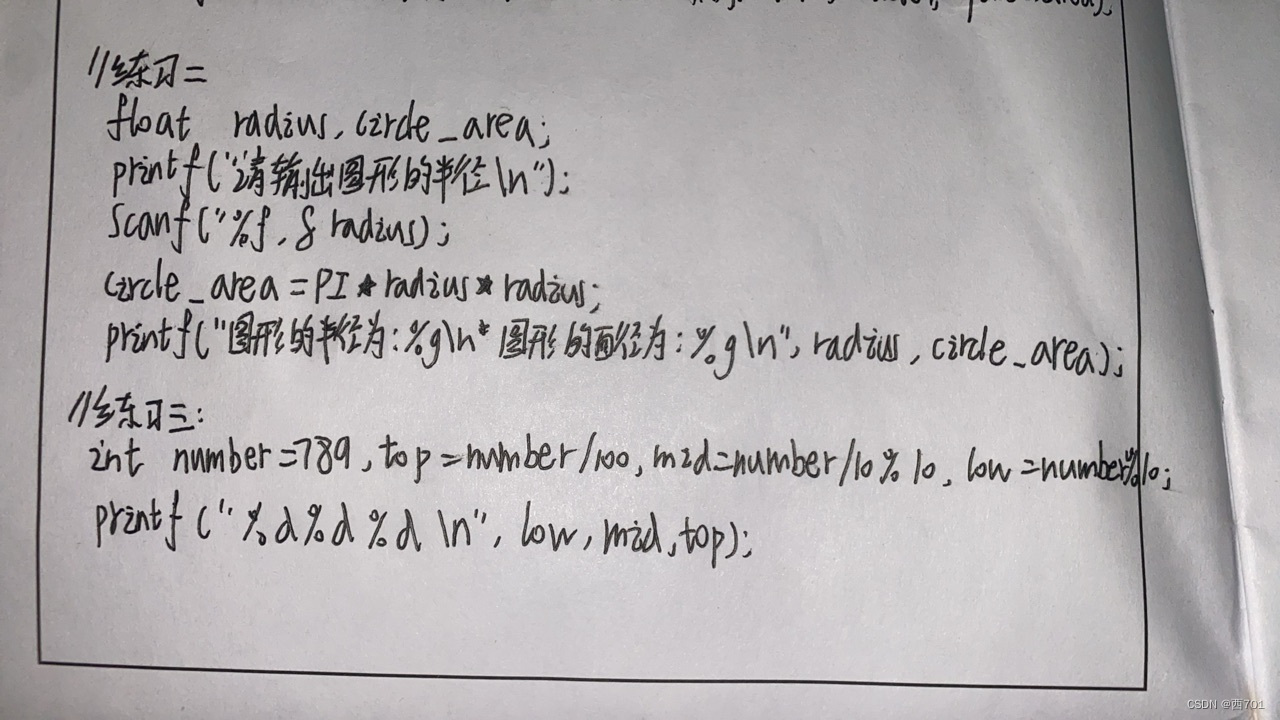 //练习二
float radius, circle_area;
printf("请输出图形的半径\n");
Scanf("%f, & radius);
circle_area=PI*radius*radius;
printf("图形的半径为:%g\n* 图形的面径为:%g\n", radius, circle_area);
//练习三:
int number=789,top=number/100,mid=number/10%10,low=number%10;
printf("%d%d%d \n", low, mid,top);
CSDN @西701